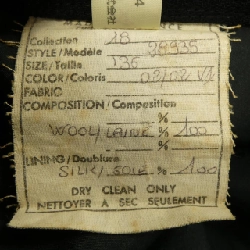 Collection 18
STYLE/Modèle 28935
SIZE/Taille J36
COLOR/Coloris 02/02 V1
FABRIC
COMPOSITION/Composition
%
WOOL/LAINE % 100
%
LINING/Doublure
SILK/SOIE % 100
DRY CLEAN ONLY
NETTOYER A SEC SEULEMENT